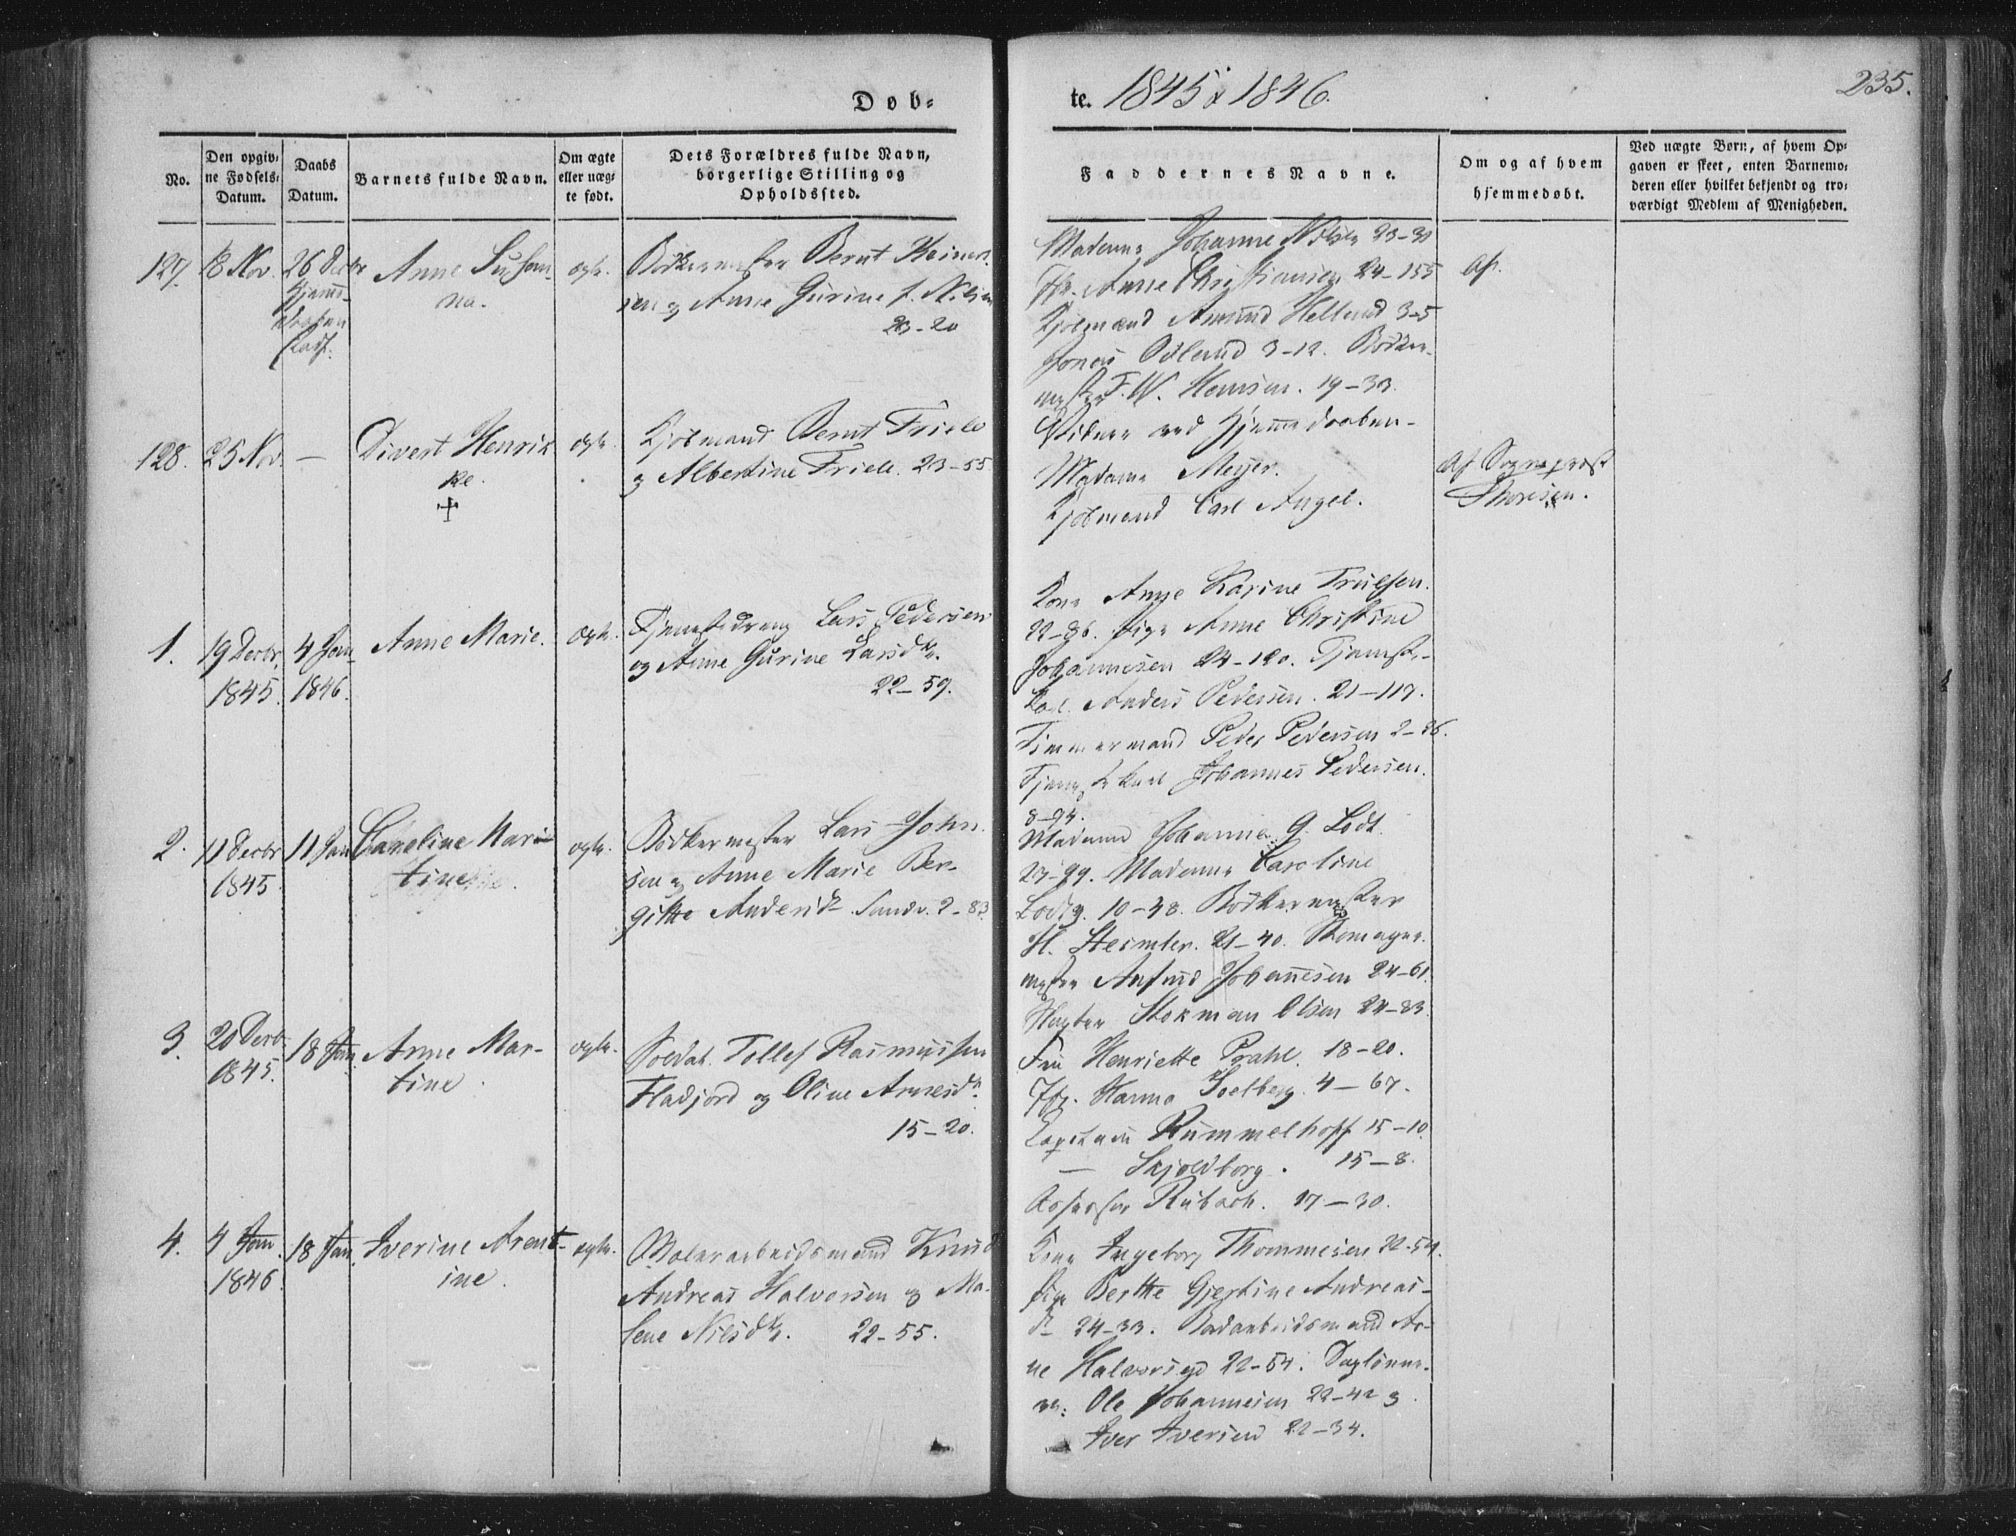 Døb-
te. 1845 & 1846.
235.
No.
Den opgiv-
ne Fødsels-
Datum.
Daabs
Datum.
Barnets fulde Navn.
Om ægte
eller uæg-
te født.
Dets Forældres fulde Navn,
borgerlige Stilling og
Opholdssted.
Faddernes Navne.
Om og af hvem
hjemmedøbt.
Ved uægte Børn, af hvem Op-
gaven er skeet, enten Barnemo-
deren eller hvilket bekjendt og tro-
værdigt Medlem af Menigheden.
127.
18 Nov.
26 Decbr
Hjemme-
daaben
stadf.
Anne Susan-
na.
ægte.
Bødkermester Bernt Heinert-
sen og Anne Gurine f. Nilsen
23-20
Madame Johanne Nilsen 23-31
Jfr. Anne Christiansen 24-155
Kjøbmænd Amund Helland 3-5
Jonas Ødland 3-12. Bødker-
mester F. W. Hansen. 19-33.
Af.
128.
25 Nov.
—
Divert Henrik
ke.
+
ægte.
Kjøbmand Bernt Friele
og Albertine Friele. 23-55
Vidner ved Hjemmedaaben-
Madame Meyer.
Kjøbmand Carl Angel.
Af Sogneprest
Thoresen.
1.
19 Decbr.
1845.
4 Jan
1846.
Anne Marie.
Ægte.
Tjenestedreng Lars Pedersen
og Anne Gurine Larsdtr.
22-59.
Kone Anne Karine Truelsen.
22-36. Pige Anne Christine
Johannesen 24-120. Tjeneste-
karl Anders Pedersen. 21-117.
Timmermand Peder Pedersen 2-36.
Tjenestekarl Johannes Pedersen.
8-94.
2.
11 Decbr
1845.
11 Jan
Caroline Mari-
tine
ægte.
Bødkermester Lars John-
sen og Anne Marie Ber-
gitte Andersdtr Sandv. 2-83
Madame Johanne G. Lodt.
23-99. Madame Caroline
Lodtz. 10-48. Bødkermester
H. Steimler. 21-40. Skomager-
mester Anfind Johannesen 24-61.
Stokman Olsen 24-83.
3.
20 Decbr.
1845.
18 Jan.
Anne Mar-
tine.
ægte.
Soldat Tollef Rasmussen
Fladjord og Oline Arnesdtr.
15-20.
Fru Henriette Prahl. 18-20.
Jfr. Hanna Soelberg. 4-67.
Capitain Rummelhoff 15-10.
— Skjoldborg. 15-8.
Assessor Rubach. 17-30.
4.
4 Jan.
1846.
18 Jan.
Iverine Arent-
ine.
ægte.
Malerarbeidsmand Knud
Andreas Halvorsen og Ma-
lene Nilsdtr. 22-55.
Kone Ingeborg Thommesen 22-54.
Pige Berthe Gjertine Andreas-
dr 24-33. Arne
Halvorsen 22-54. Daglønne-
re: Ole Johannesen 22-42 og
Iver Iversen 22-34.